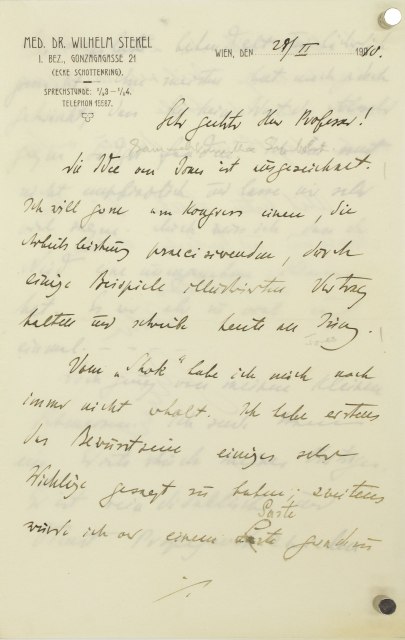 MED. DR. WILHELM STEKEL
I. BEZ., GONZAGAGASSE 21
(ECKE SCHOTTENRING).
SPRECHSTUNDE: 1/23–1/24.
TELEPHON 15587.
WIEN, DEN 28/II 19
Sehr geehrter Herr Professor!
die Idee von Jones ist ausgezeichnet.
Ich will gerne am Kongress einen, die
Arbeitsleistung , durch
einige Beispiele illustrirten Vortrag
halten und schreibe heute an Jung.
Vom „Shok" habe ich mich noch
immer nicht erholt. Ich habe erstens
das Bewusstsein einiges sehr
Wichtige gesagt zu haben; zweitens
würde ich vor einem